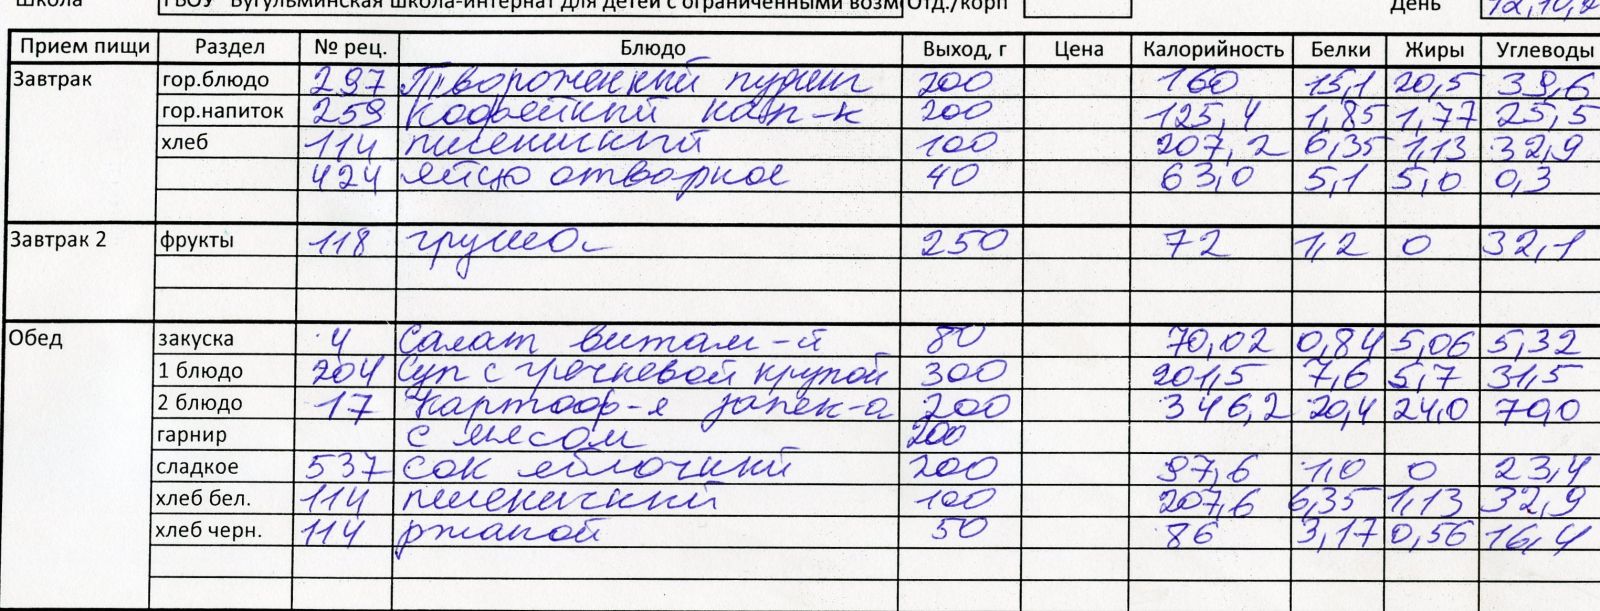 Школа ГБОУ "Бугульминская школа-интернат для детей с ограниченными возм Отд./корп День 12,10,2
Прием пищи Раздел № рец. Блюдо Выход, г Цена Калорийность Белки Жиры Углеводы
Завтрак гор.блюдо 297 Твороженный пудинг 200 160 15,1 20,5 39,6
гор.напиток 259 кофейный нап-к 200 125,4 1,85 1,77 25,5
хлеб 114 пшеничный 100 207,2 6,35 1,13 32,9
424 яйцо отварное 40 63,0 5,1 5,0 0,3
Завтрак 2 фрукты 118 груша 250 72 1,2 0 32,1
Обед закуска 4 Салат витам-й 80 70,02 0,84 5,06 5,32
1 блюдо 204 Суп с гречневой крупой 300 201,5 7,6 5,7 31,5
2 блюдо 17 Картоф-я запек-а 200 346,2 20,4 24,0 70,0
гарнир с мясом 200
сладкое 537 сок яблочный 200 97,6 1,0 0 23,4
хлеб бел. 114 пшеничный 100 207,6 6,35 1,13 32,9
хлеб черн. 114 ржаной 50 86 3,17 0,56 16,4